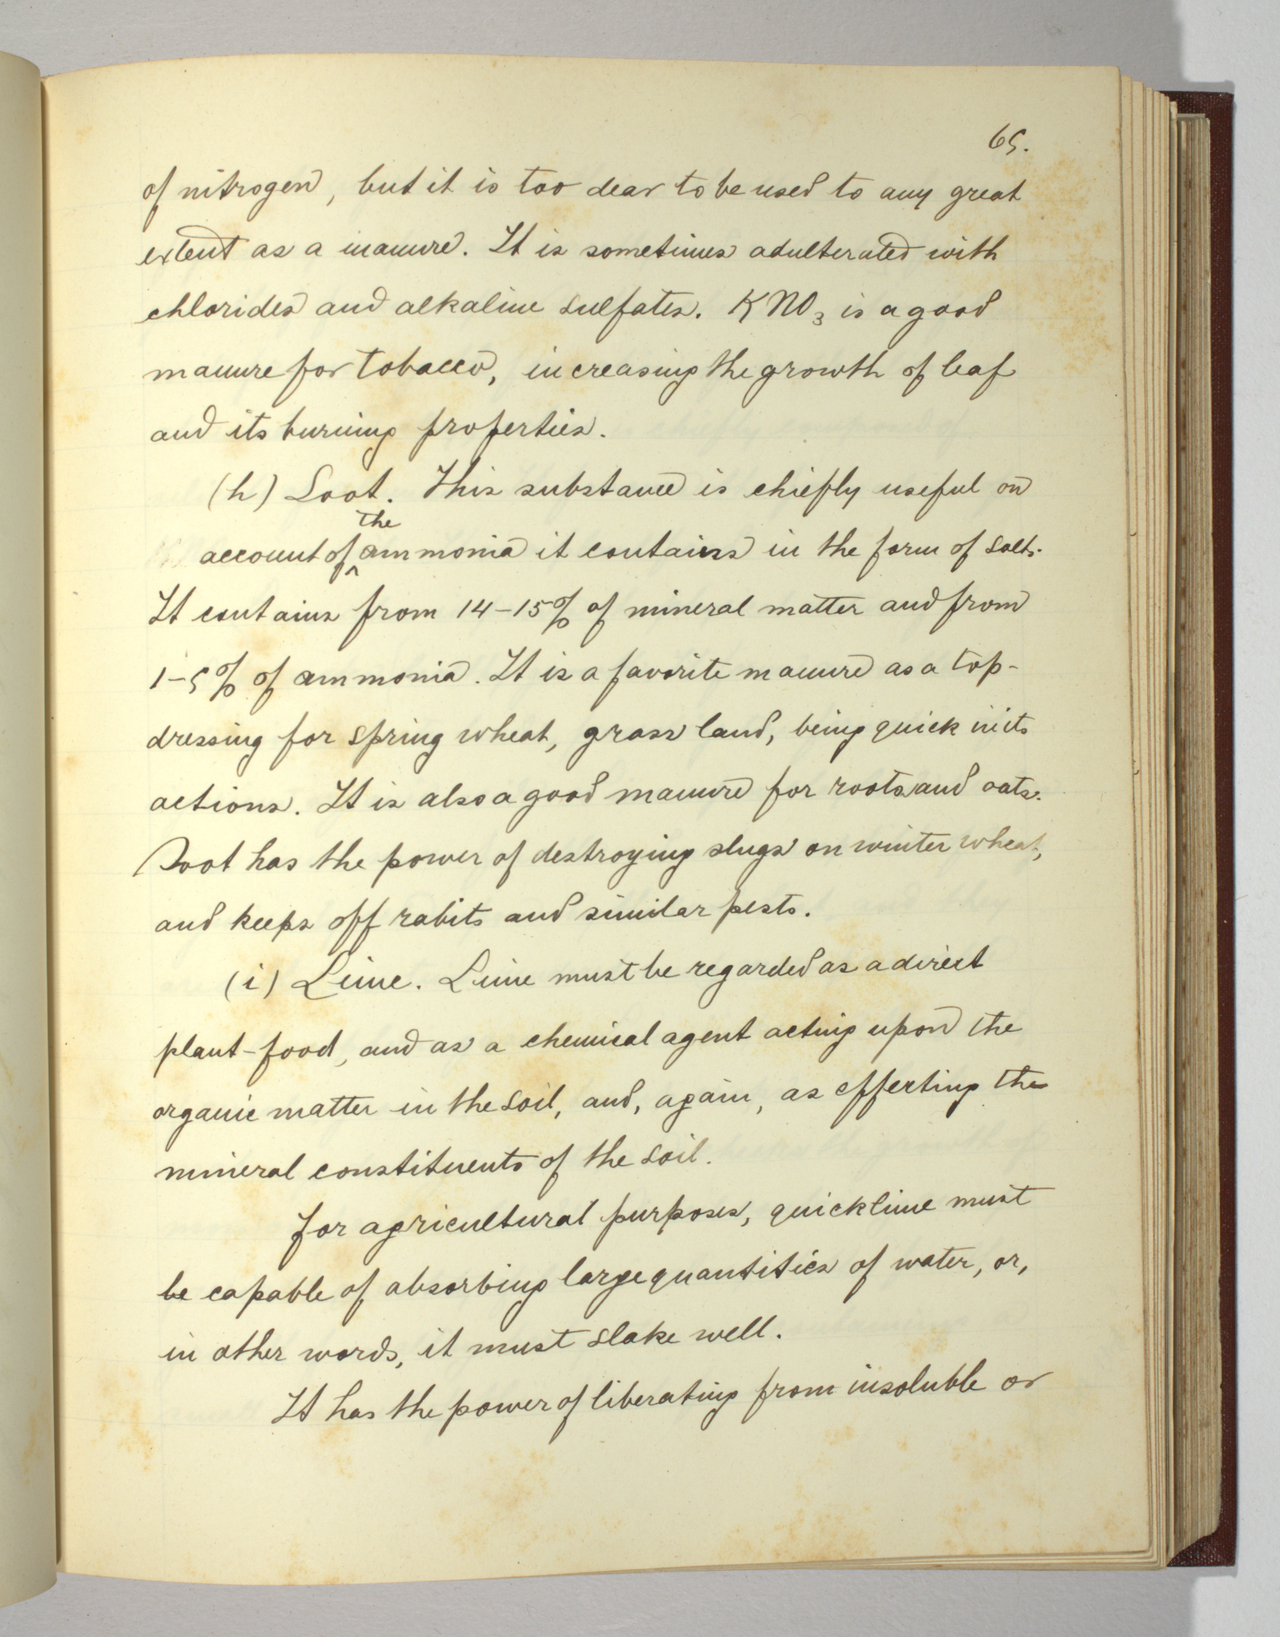 65.
of nitrogen, but it is too dear to be used to any great
extent as a manure. It is sometimes adulterated with
chlorides and alkaline sulfates. KNO₃ is a good
manure for tobacco, increasing the growth of leaf
and its burning properties.
(h) Soot. This substance is chiefly useful on
the
account of ^ ammonia it contains in the form of salts.
It contains from 14-15% of mineral matter and from
1-5% of ammonia. It is a favorite manure as a top-
dressing for spring wheat, grass land, being quick in its
actions. It is also a good manure for roots and oats.
Soot has the power of destroying slugs on winter wheat,
and keeps off rabits and similar pests.
(i) Lime. Lime must be regarded as a direct
plant-food, and as a chemical agent acting upon the
organic matter in the soil, and, again, as effecting the
mineral constituents of the soil.
For agricultural purposes, quicklime must
be capable of absorbing large quantities of water, or,
in other words, it must slake well.
It has the power of liberating from insoluble or